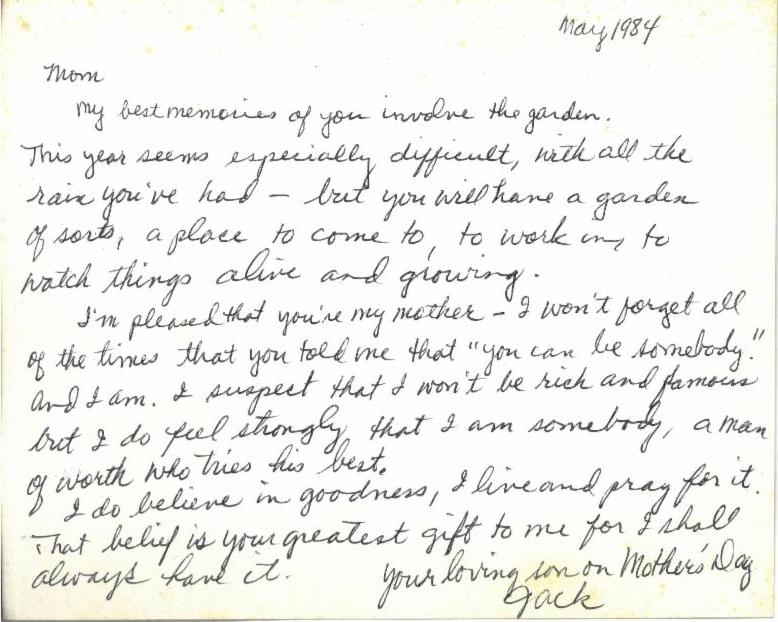 May 1984
Mom
My best memories of you involve the garden.
This year seems especially difficult, with all the
rain you've had – but you will have a garden
of sorts, a place to come to, to work in, to
watch things alive and growing.
I'm pleased that you're my mother – I won't forget all
of the times that you told me that "you can be somebody."
And I am. I suspect that I won't be rich and famous
but I do feel strongly that I am somebody, a man
of worth who tries his best.
I do believe in goodness, I live and pray for it.
That belief is your greatest gift to me for I shall
always have it.
Your loving son on Mother's Day
Jack